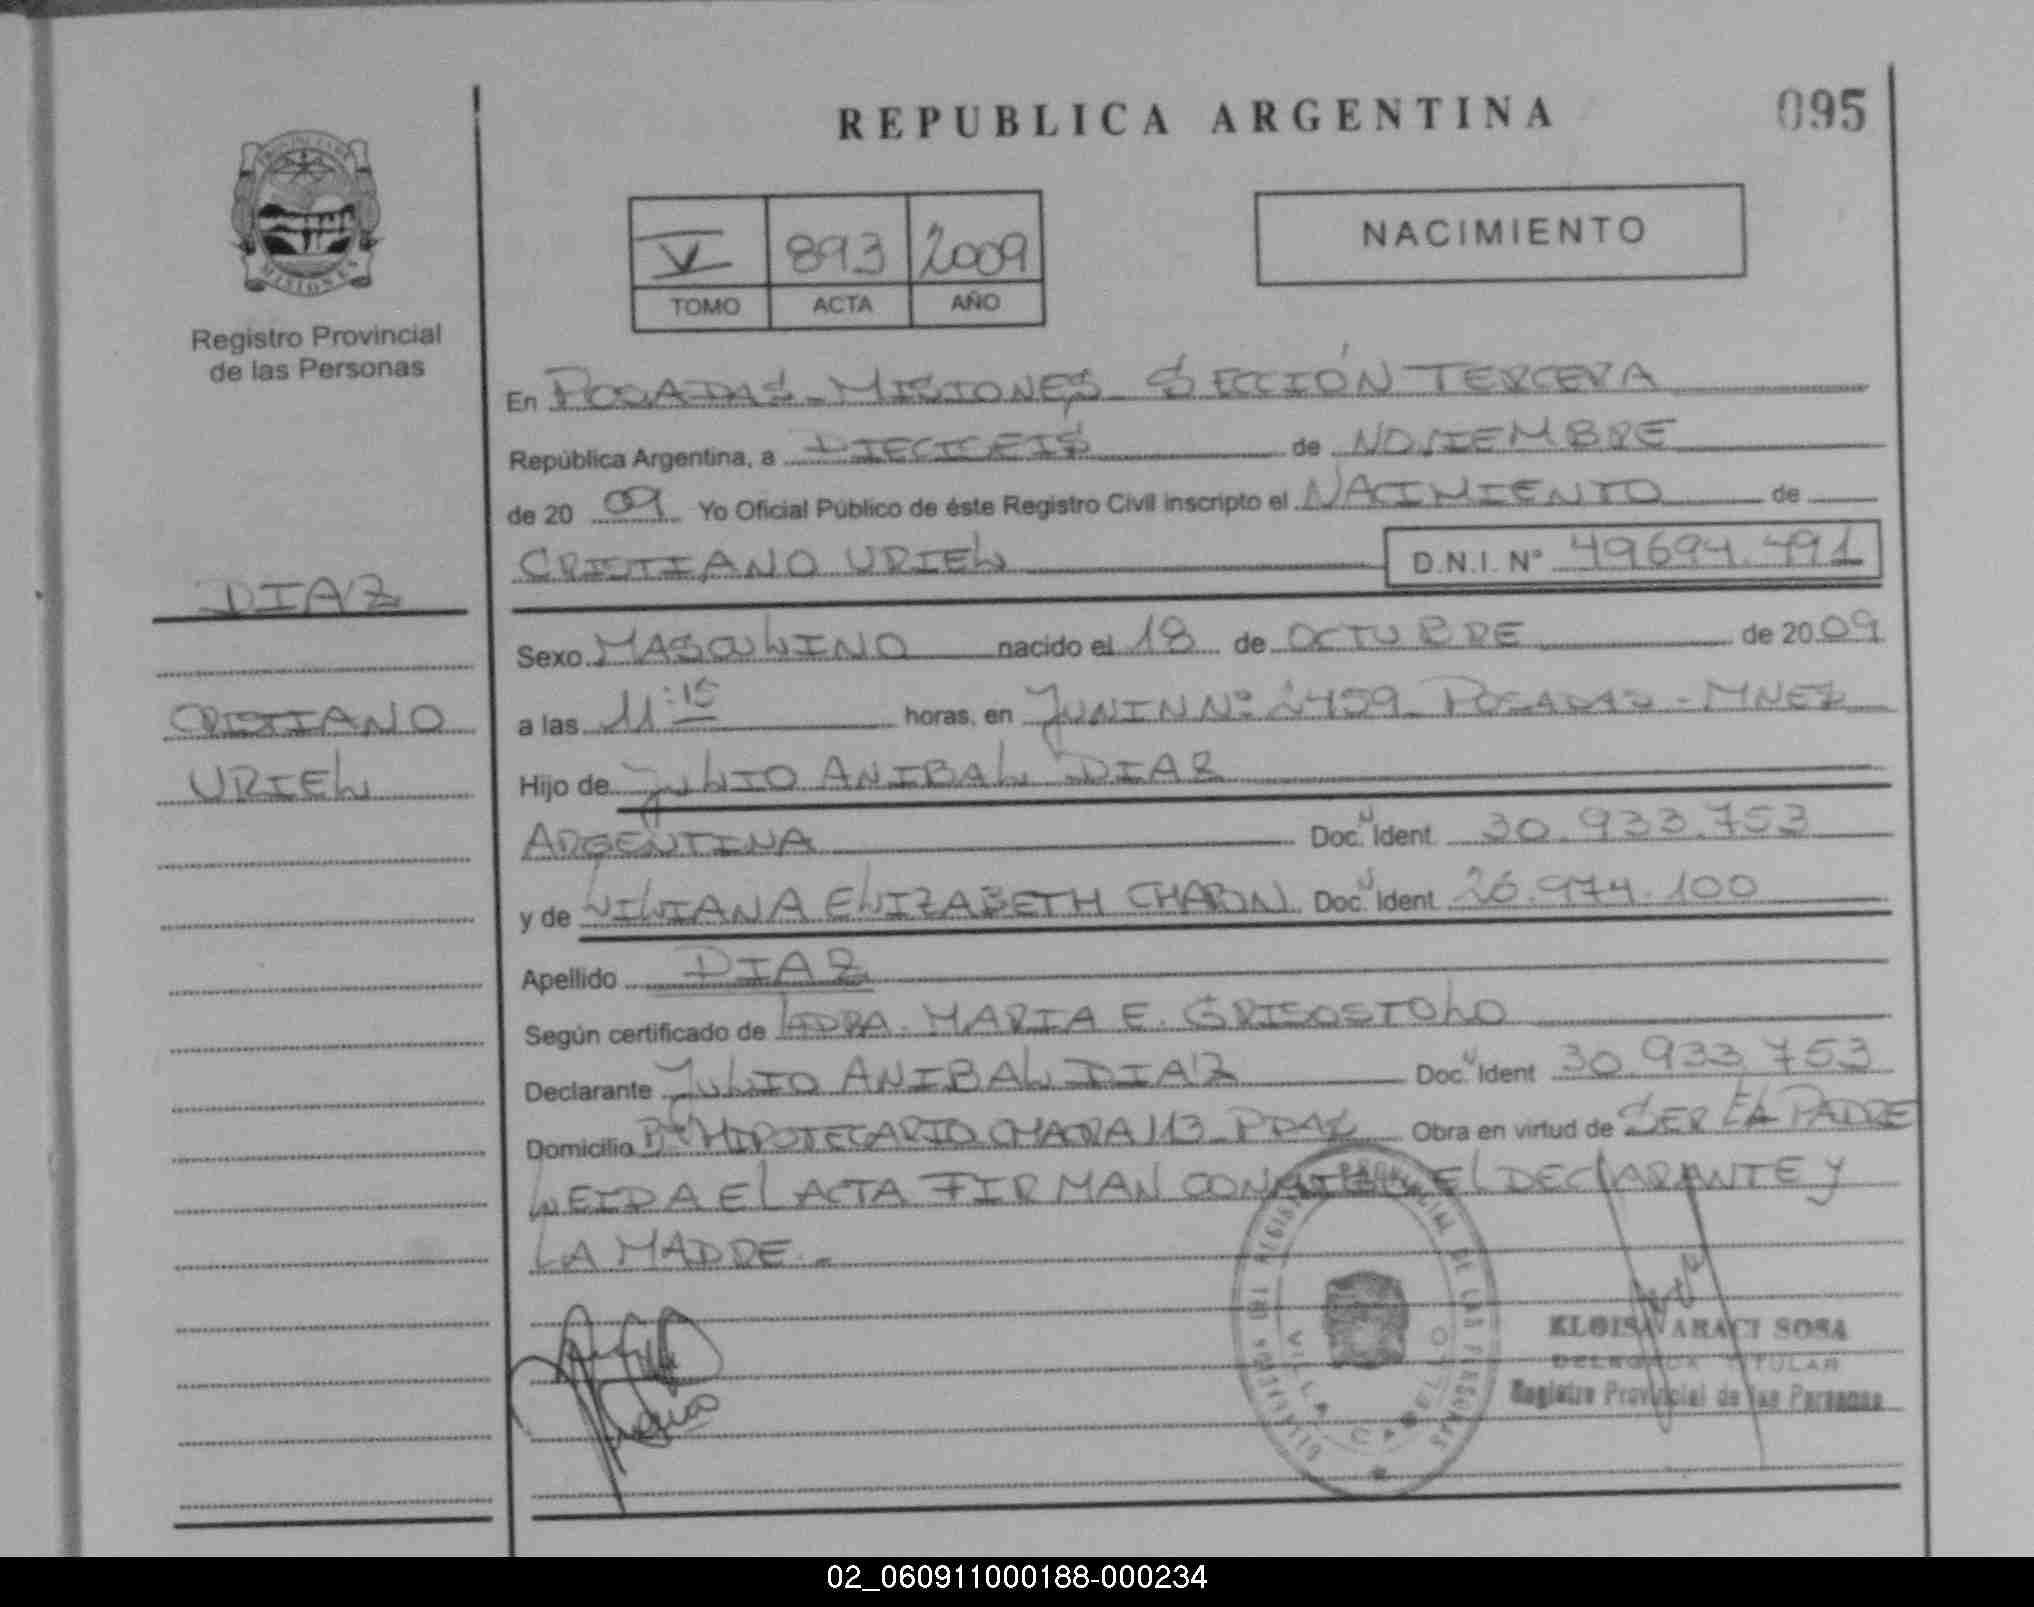 REPUBLICA ARGENTINA
095
PROVINCIA DE
MISIONES
Registro Provincial
de las Personas
V 893 2009
TOMO ACTA AÑO
NACIMIENTO
En POSADAS - MISIONES - SECCIÓN TERCERA
República Argentina, a DIECISEIS de NOVIEMBRE
de 20 09 Yo Oficial Público de éste Registro Civil inscripto el NACIMIENTO de
CRISTIANO URIEL D.N.I. Nº 49694.491
DIAZ
Sexo MASCULINO nacido el 18 de OCTUBRE de 20 09
CRISTIANO
a las 11:15 horas, en JUNIN Nº 2459 POSADAS - MNES
URIEL
Hijo de JULIO ANIBAL DIAZ
ARGENTINA Doc. Ident. 30.933.753
y de LILIANA ELIZABETH Doc. Ident. 26.974.100
Apellido DIAZ
Según certificado de LA DRA. MARIA E. GRISOSTOLO
Declarante JULIO ANIBAL DIAZ Doc. Ident. 30.933.753
Domicilio Bº HIPOTECARIO CHACRA 113 - PDAS Obra en virtud de SER EL PADRE
LEIDA EL ACTA FIRMAN CONMIGO EL DECLARANTE Y
LA MADRE.-
REGISTRO PROVINCIAL DE LAS PERSONAS
VILLA CABELLO
ELOISA ARACI SOSA
DELEGADA TITULAR
Registro Provincial de las Personas
02_060911000188-000234